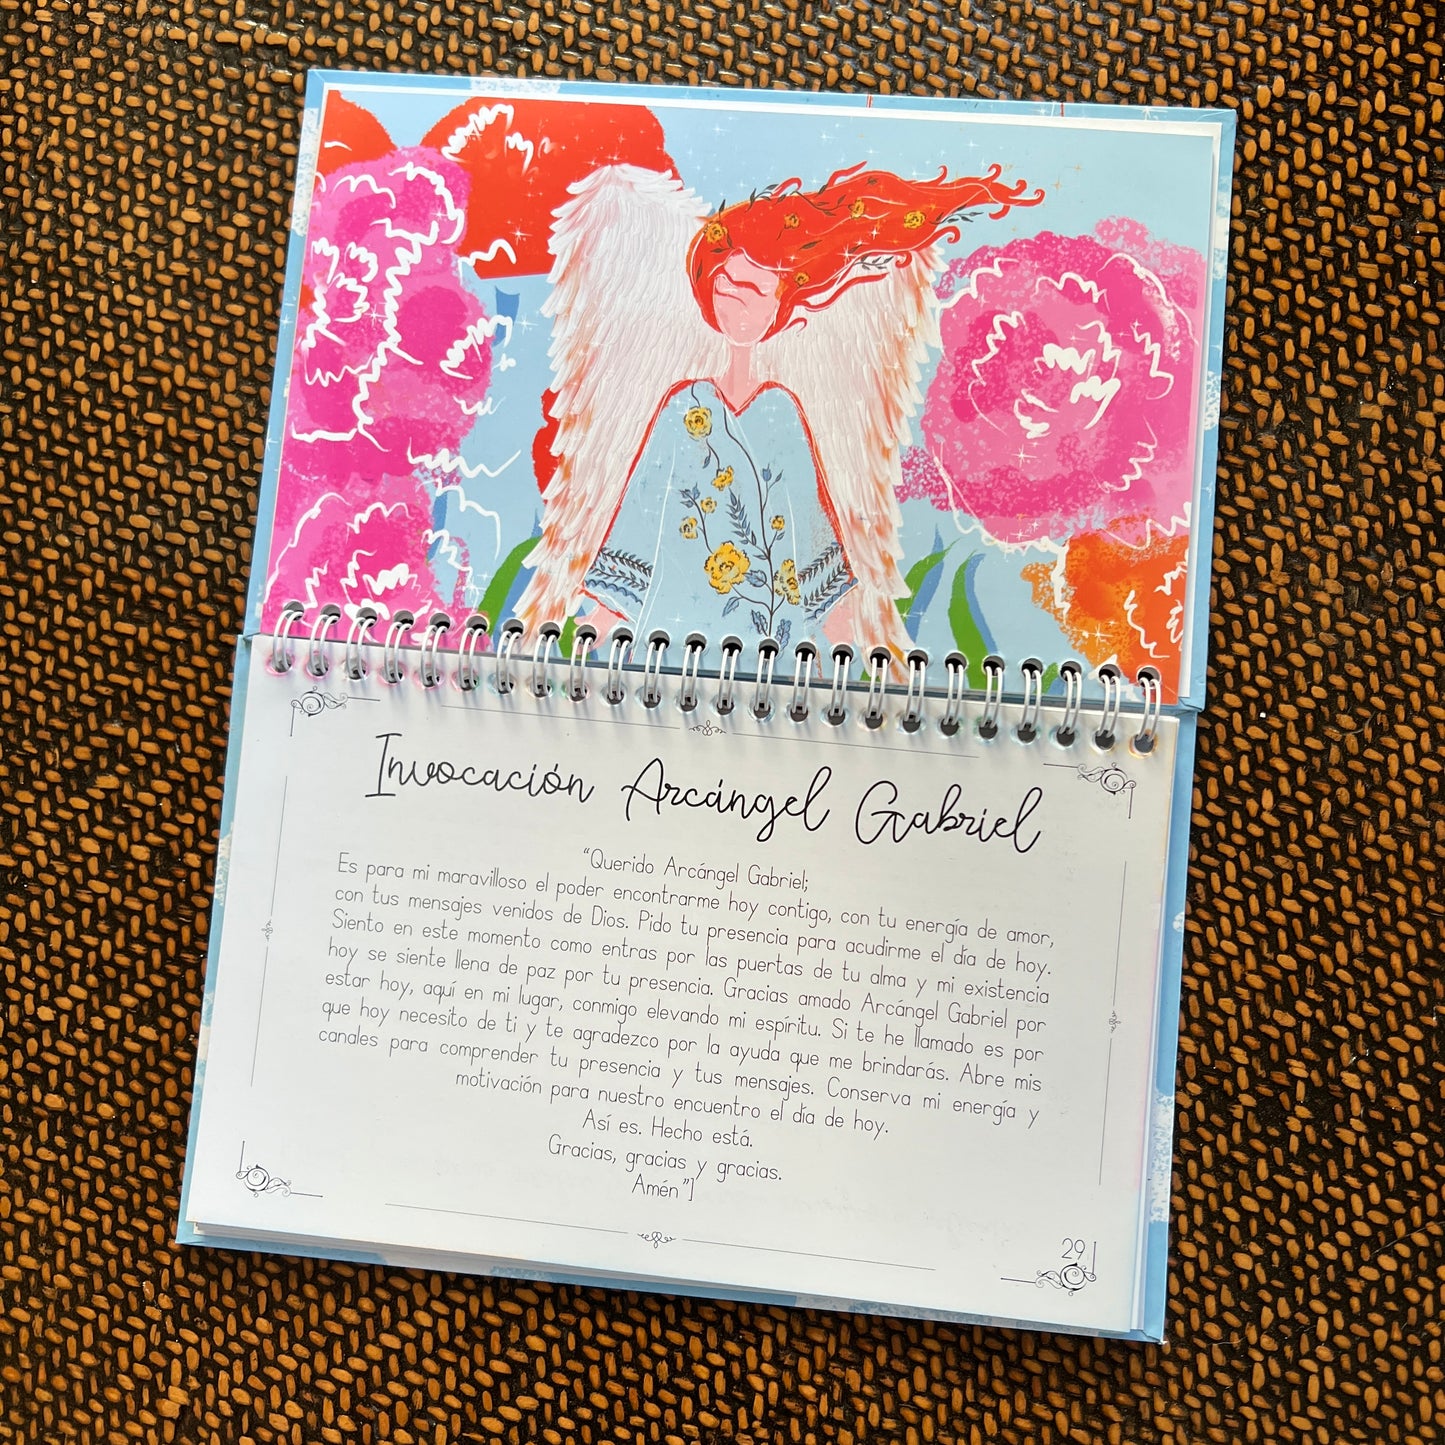 Invocación Arcángel Gabriel
“Querido Arcángel Gabriel;
Es para mi maravilloso el poder encontrarme hoy contigo, con tu energía de amor,
con tus mensajes venidos de Dios. Pido tu presencia para acudirme el día de hoy.
Siento en este momento como entras por las puertas de tu alma y mi existencia
hoy se siente llena de paz por tu presencia. Gracias amado Arcángel Gabriel por
estar hoy, aquí en mi lugar, conmigo elevando mi espíritu. Si te he llamado es por
que hoy necesito de ti y te agradezco por la ayuda que me brindarás. Abre mis
canales para comprender tu presencia y tus mensajes. Conserva mi energía y
motivación para nuestro encuentro el día de hoy.
Así es. Hecho está.
Gracias, gracias y gracias.
Amén”]
29